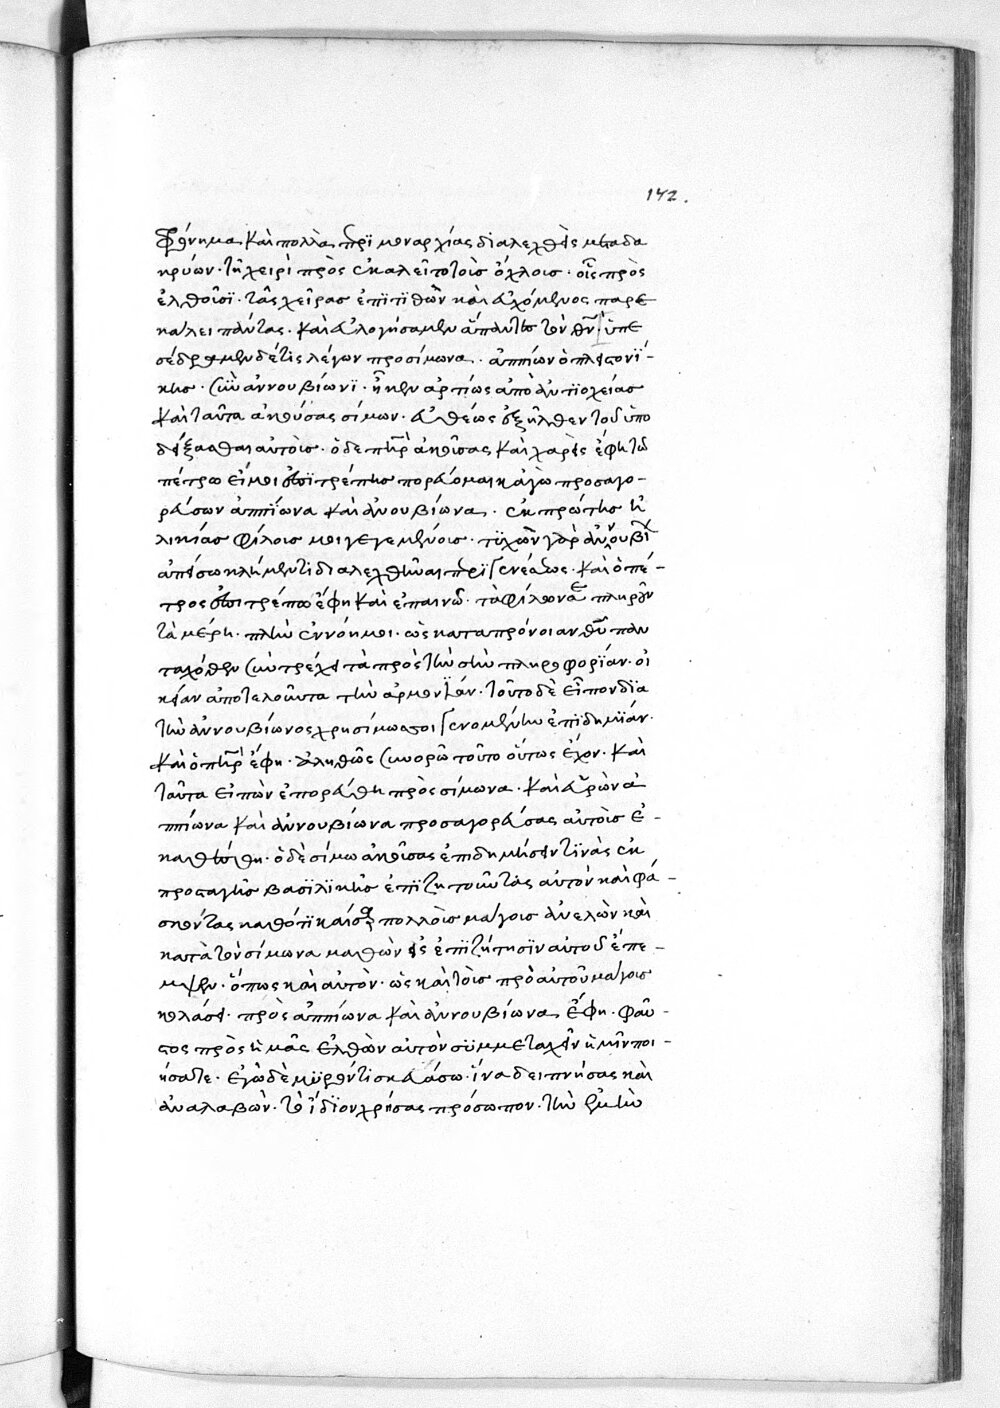 142.
φρόνημα καὶ πολλὰ πρϊ μοναρχίας διαλεχθεὶς μετὰ δα
κρύων· τῇ χειρὶ πρὸς ἐκαλεῖτο τοῖσ ὄχλοισ· οἷς πρὸς
ἐλθοῦσϊ· τὰς χεῖρασ ἐπϊτϊθῶν καὶ εὐχόμενος παρε
κάλει πάντας· καὶ εὐλογήσαμεν ἅπαντες τὸν θν ὑπε
σέδραμεν δέ τίς λέγων προσίμωνα· ἀππίων ὁ πλειστονϊ-
κησ· σὺν ἀννουβίωνϊ· ἧκεν ἀρτίως ἀπὸ ἀντϊοχείας
καὶ ταῦτα ἀκούσας σίμων· εὐθέως ἐξῆλθεν τοῦ ὑπο
δέξασθαι αὐτοὺσ· ὁ δε πτὴρ ἀκούσας καὶ χαρεὶς ἔφη τῶ
πέτρω εἴ μοι ἐπϊτρέπησ πορεύομαι κἀγὼ προσαγο-
ρεύσων ἀππίωνα καὶ ἀνουβίωνα· ἐκ πρώτησ ἡ
λικίασ φίλοισ μοι γεγεμένοισ· τϊχῶν γὰρ ἀννουβϊ
απείσω κλήμεντι διαλεχθῆναι πρϊ γενέσεως· καὶ ὁ πέ-
τρος ἐπιτρέπω ἔφη καὶ ἐπαινῶ· τὰ φίλων σε πληροῦν
τὰ μέρη· πλὴν ἐννόημοι· ὡς κατα πρόνοιαν θῦ παν
ταχόθεν συντρέχει τὰ πρὸς τὴν σὴν πληροφορίαν· οἰ
κείαν ἀποτελοῦντα τὴν ἁρμονίαν· τοῦτο δὲ εἶπον διὰ
τὴν ἀννουβίωνος χρησίμως σοι γενομένην ἐπϊδημϊάν·
καὶ ὁ πτὴρ ἔφη· ἀληθῶς συνορῶ τοῦτο οὕτως ἔχον· καὶ
ταῦτα εἰπὼν ἐπορεύθη πρὸς σίμωνα· καὶ εὑρὼν ἀ
ππίωνα καὶ ἀννουβίωνα προσαγορεύσας αὐτοὶσ ἐ-
καθέσθη· ὁ δὲ σίμω ἀκούσας ἐπιδημήσειν τϊνὰς ἐκ
προσταγῆσ βασϊλϊκῆσ ἐπϊζητοῦντας αὐτὸν καὶ φά-
σκοντας καθότϊ καῖσαρ πολλοὺσ μάγοισ ἀνελὼν καὶ
κατὰ τὸν σίμωνα μαθὼν εἰς ἐπϊζήτησϊν αὐτοῦ ἔπε-
μψεν· ὅπως καὶ αὐτὸν· ὡς καὶ τοὺσ πρὸ αὐτοῦ μάγοισ
κολάσει· πρὸς ἀππίωνα καὶ ἀννουβίωνα ἔφη· φαῦ-
στος πρὸς ἡμᾶς ἐλθὼν αὐτὸν συμμετασχεῖν ἡμῖν ποι-
ήσατε· ἐγὼ δὲ μῦρόν τι σκευάσω· ἵνα δειπνήσας καὶ
ἀναλαβὼν· τὸ ἴδϊον χρήσας πρόσωπον· τὴν ἐμὴν